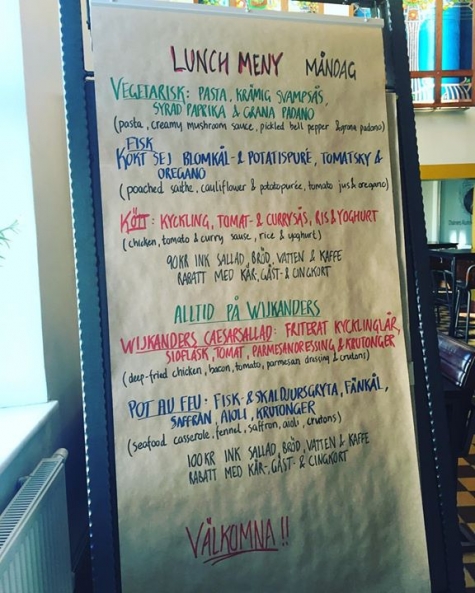 LUNCH MENY MÅNDAG
VEGETARISK: PASTA, KRÄMIG SVAMPSÅS,
SYRAD PAPRIKA & GRANA PADANO
(pasta, creamy mushroom sauce, pickled bell pepper & grana padano)
FISK
KOKT SEJ BLOMKÅL- & POTATISPURÉ, TOMATSKY &
OREGANO
(poached saithe, cauliflower & potatopurée, tomato jus & oregano)
KÖTT: KYCKLING, TOMAT- & CURRYSÅS, RIS & YOGHURT
(chicken, tomato & curry sause, rice & yoghurt)
90KR INK SALLAD, BRÖD, VATTEN & KAFFE
RABATT MED KÅR-, GÄST- & CINGKORT
ALLTID PÅ WIJKANDERS
WIJKANDERS CAESARSALLAD: FRITERAT KYCKLINGLÅR,
SIDFLÄSK, TOMAT, PARMESANDRESSING & KRUTONGER
(deep-fried chicken, bacon, tomato, parmesan dressing & crutons)
POT AU FEU: FISK- & SKALDJURSGRYTA, FÄNKÅL,
SAFFRAN, AIOLI, KRUTONGER
(seafood casserole, fennel, saffron, aioli, crutons)
100KR INK SALLAD, BRÖD, VATTEN & KAFFE
RABATT MED KÅR-, GÄST- & CINGKORT
VÄLKOMNA!!